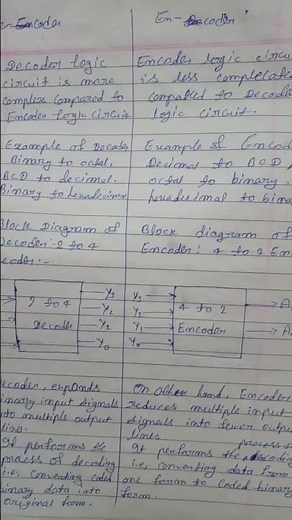 En-coder
Decoder logic
circuit is more
complex compared to
Encoder logic circuit
Example of Decoder
Binary to octal,
BCD to decimal,
Binary to hexadecimal
Block Diagram of
Decoder: 2 to 4
2 to 4
Decoder
Y3
Y2
Y1
Y0
Decoder, expands
binary input signals
into multiple output
line.
It performs the
process of decoding
i.e, converting coded
binary data into
original form.
En-coder
Encoder logic
is less
compared to
logic circuit.
Example of
Decimal to BCD
octal to binary.
hexadecimal to
Block diagram of
Encoder: 4 to 2
Y3
Y2
Y1
Y0
4 to 2
Encoder
On other hand, Encoder
reduces multiple input
signals into fewer output
lines.
It performs the
i.e, converting data from
one form to coded binary
form.